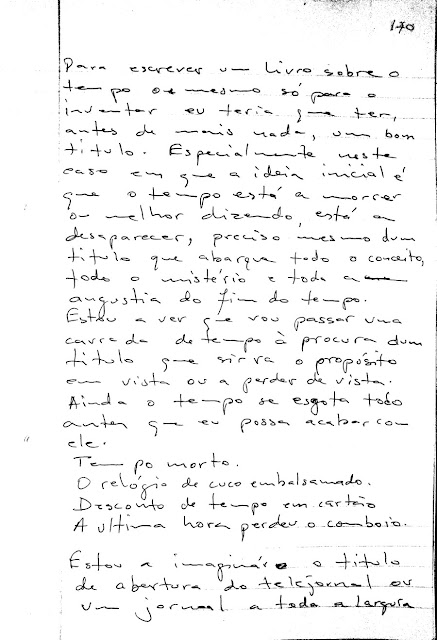 170
Para escrever um livro sobre o
tempo ou mesmo só para o
inventar eu teria que ter,
antes de mais nada, um bom
titulo. Especialmente neste
caso em que a ideia inicial é
que o tempo está a morrer
ou melhor dizendo, está a
desaparecer, preciso mesmo dum
titulo que abarque todo o conceito,
todo o mistério e toda a
angustia do fim do tempo.
Estou a ver que vou passar uma
carrada de tempo à procura dum
titulo que sirva o propósito
em vista ou a perder de vista.
Ainda o tempo se esgota todo
antes que eu possa acabar com
ele.
Tempo morto.
O relógio de cuco embalsamado.
Desconto de tempo em cartão
A ultima hora perdeu o comboio.
Estou a imaginar o titulo
de abertura do telejornal ou
um jornal a toda a largura